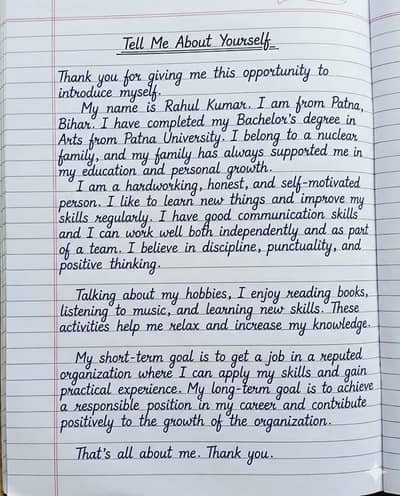 Tell Me About Yourself
Thank you for giving me this opportunity to
introduce myself.
My name is Rahul Kumar. I am from Patna,
Bihar. I have completed my Bachelor's degree in
Arts from Patna University. I belong to a nuclear
family, and my family has always supported me in
my education and personal growth.
I am a hardworking, honest, and self-motivated
person. I like to learn new things and improve my
skills regularly. I have good communication skills
and I can work well both independently and as part
of a team. I believe in discipline, punctuality, and
positive thinking.
Talking about my hobbies, I enjoy reading books,
listening to music, and learning new skills. These
activities help me relax and increase my knowledge.
My short-term goal is to get a job in a reputed
organization where I can apply my skills and gain
practical experience. My long-term goal is to achieve
a responsible position in my career and contribute
positively to the growth of the organization.
That's all about me. Thank you.